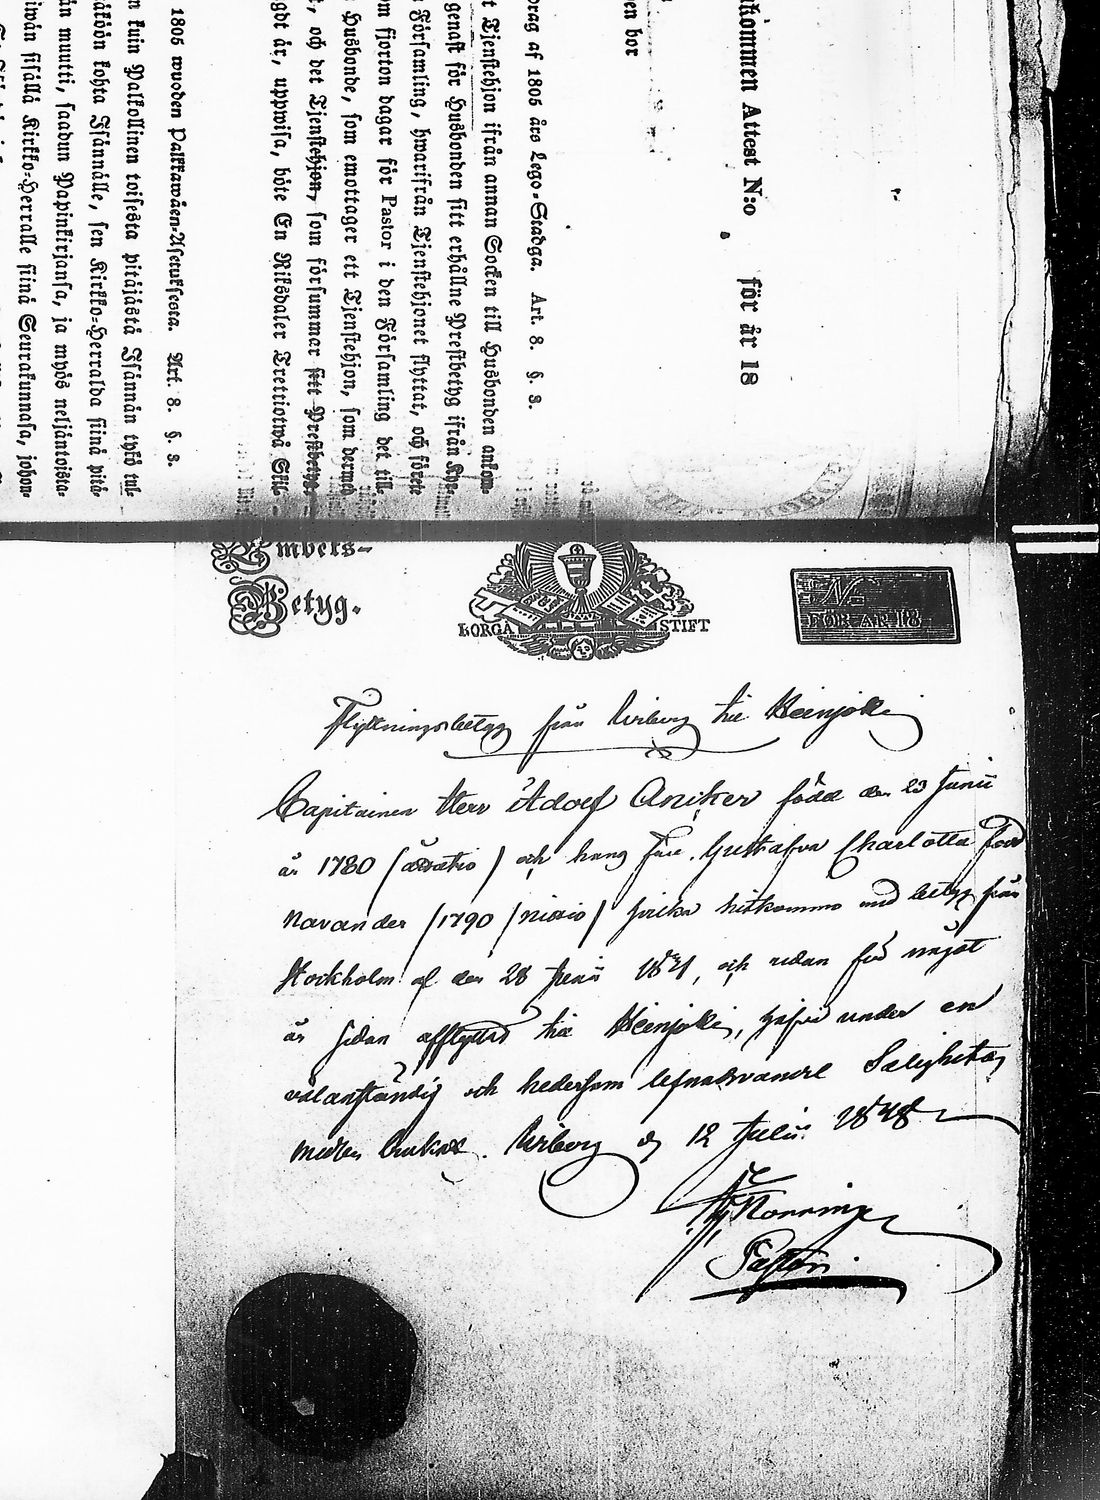 åkommen Attest N:o för år 18
en bor
drag af 1805 års Lego-Stadga. Art. 8. §. 3.
t Tjenstehjon ifrån annan Socken till Husbonden ankom-
genast för Husbonden sitt erhållne Prestbetyg ifrån Kyr-
Församling, hwarifrån Tjenstehjonet flyttat, och förete
om fjorton dagar för Pastor i den Församling det till-
Husbonde, som emottager ett Tjenstehjon, som dermed
, och det Tjenstehjon, som försummar sitt Prestbetyg
gdt år, uppwisa, böte En Riksdaler Trettiotwå Skil-
1805 wuoden Palkkawäen-Asetuksesta. Art. 8. §. 3.
n kuin Palkollinen toisesta pitäjästä Isännän tykö tul-
äköön kohta Isännälle, sen Kirkko-Herralda siinä pitä-
än muutti, saadun Papinkirjansa, ja myös neljäntoista-
iwän sisällä Kirkko-Herralle siinä Seurakunnasa, johon-
Embets-
Betyg.
BORGÅ STIFT
No
FÖR ÅR 18
Flyttningsbetyg från Wiborg till Heinjoki
Capitainen Herr Adolf Aniker född den 23 Junii
år 1780 ( ) och hans Fru Gustafva Charlotta född
Navander (1790 / ) hitkomne med betyg från
Stockholm af den 28 Junii och sedan för något
år sedan afflyttad till Heinjoki, under en
välanständig och hedersam lefnadsvandel Salighetens
medlen brukat. Wiborg d 12 Julii 1848
Pastor